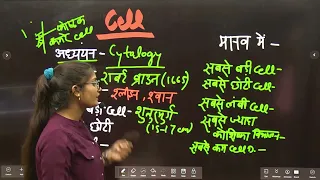 Cell
अध्ययन - Cytology
राबर्ट ब्राउन (1665)
श्लाइन, श्वान
बड़ी Cell - शुतुरमुर्ग
(15-17 cm)
छोटी
मानव में -
सबसे बड़ी Cell -
सबसे छोटी Cell -
सबसे लंबी Cell -
सबसे ज्यादा
कोशिका विभाजन -
सबसे कम Cell D. -